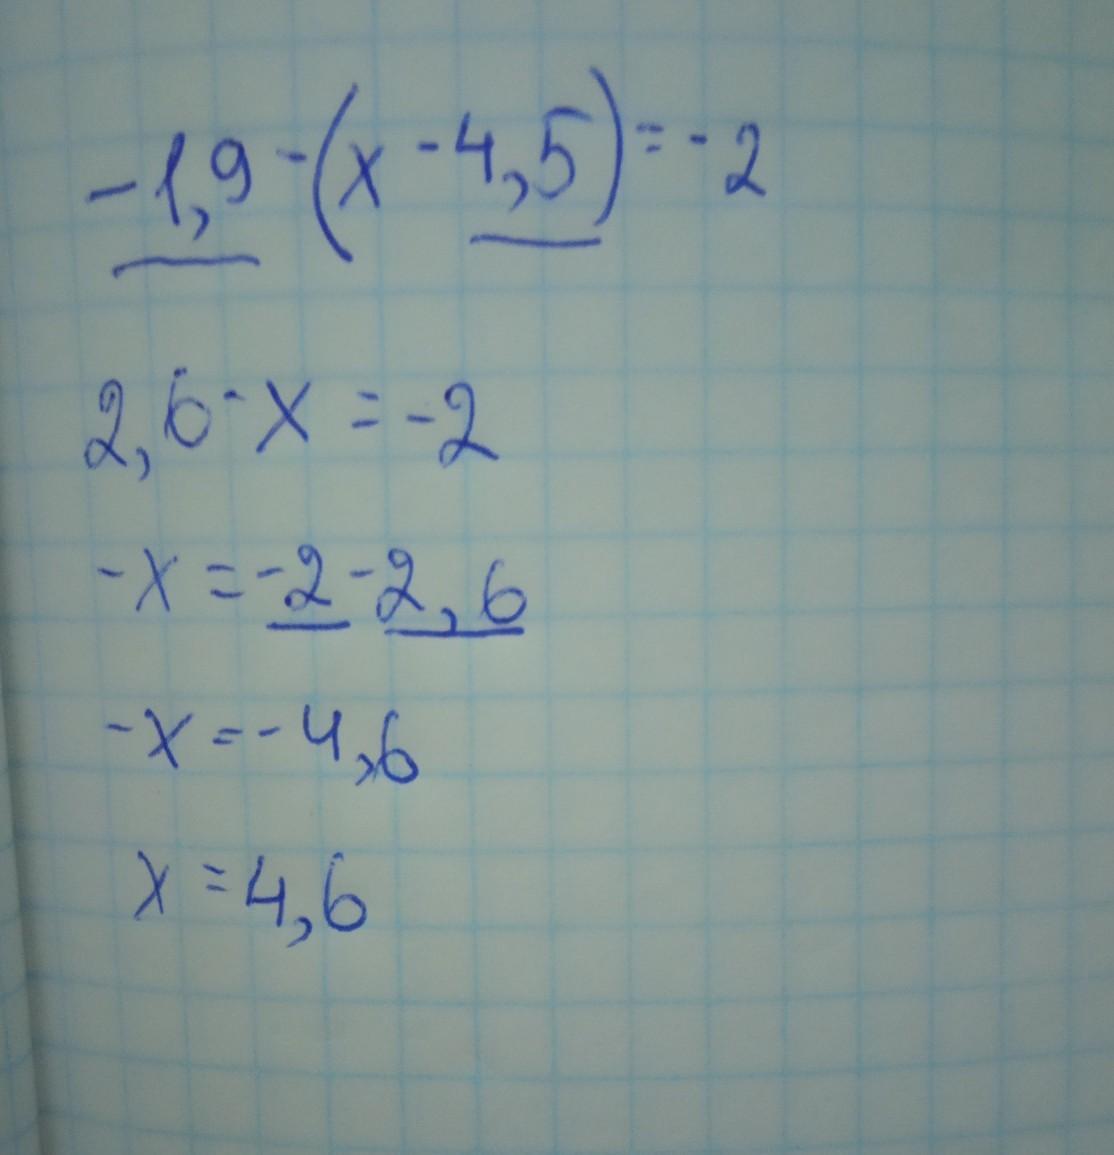 -1,9-(x-4,5)=-2
2,6-x=-2
-x=-2-2,6
-x=-4,6
x=4,6